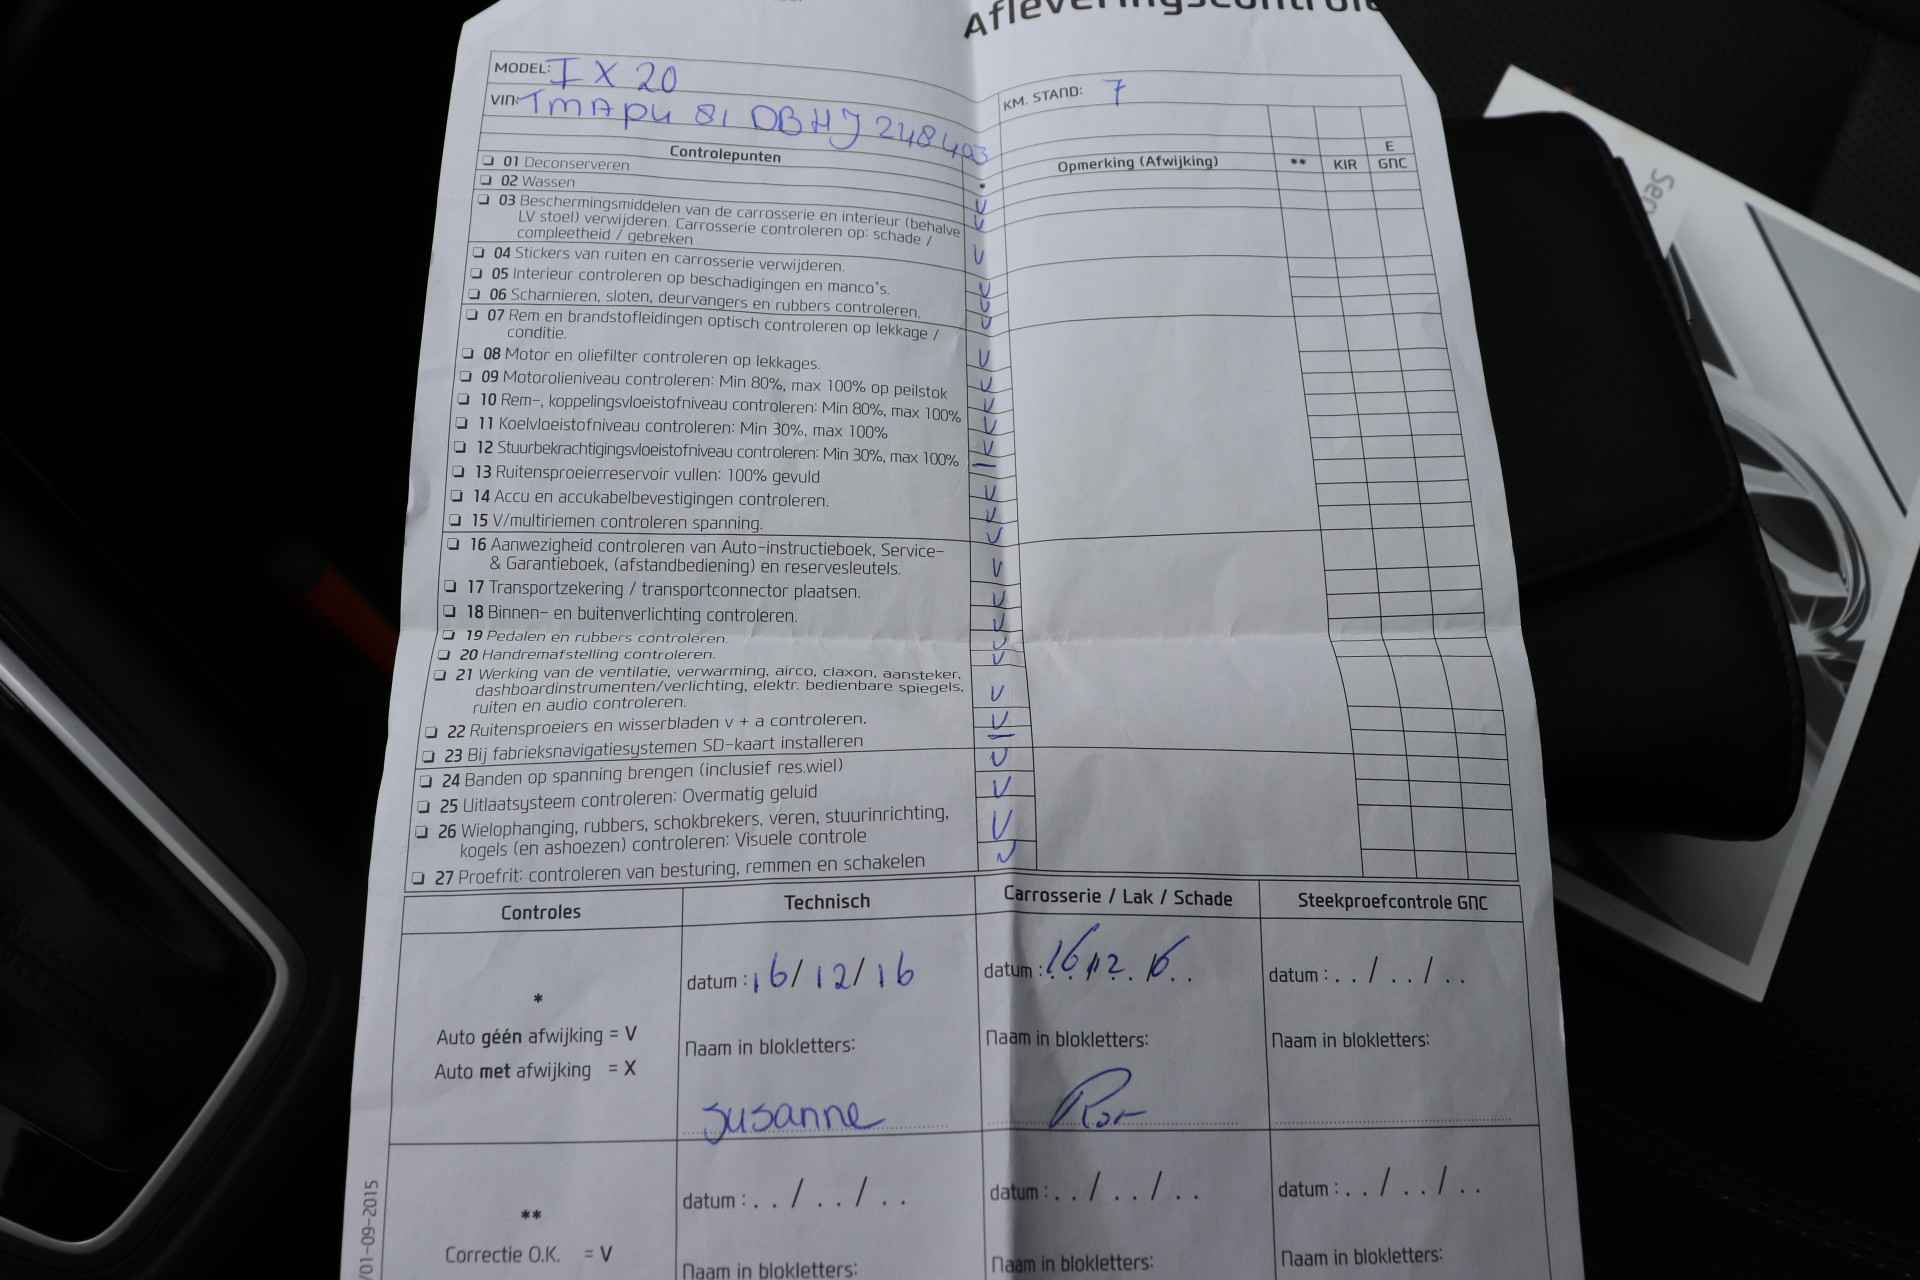 Afleveringscontrole
MODEL: IX 20
KM. STAND: 7
VIN: TMAPU 81 DBHJ 248403
E
Controlepunten * Opmerking (Afwijking) ** KIR GNC
01 Deconserveren V
02 Wassen V
03 Beschermingsmiddelen van de carrosserie en interieur (behalve
LV stoel) verwijderen. Carrosserie controleren op: schade /
compleetheid / gebreken V
04 Stickers van ruiten en carrosserie verwijderen. V
05 Interieur controleren op beschadigingen en manco's. V
06 Scharnieren, sloten, deurvangers en rubbers controleren. V
07 Rem en brandstofleidingen optisch controleren op lekkage /
conditie. V
08 Motor en oliefilter controleren op lekkages. V
09 Motorolieniveau controleren: Min 80%, max 100% op peilstok V
10 Rem-, koppelingsvloeistofniveau controleren: Min 80%, max 100% V
11 Koelvloeistofniveau controleren: Min 30%, max 100% V
12 Stuurbekrachtigingsvloeistofniveau controleren: Min 30%, max 100% –
13 Ruitensproeierreservoir vullen: 100% gevuld V
14 Accu en accukabelbevestigingen controleren. V
15 V/multiriemen controleren spanning. V
16 Aanwezigheid controleren van Auto-instructieboek, Service-
& Garantieboek, (afstandbediening) en reservesleutels. V
17 Transportzekering / transportconnector plaatsen. V
18 Binnen- en buitenverlichting controleren. V
19 Pedalen en rubbers controleren. V
20 Handremafstelling controleren. V
21 Werking van de ventilatie, verwarming, airco, claxon, aansteker,
dashboardinstrumenten/verlichting, elektr. bedienbare spiegels,
ruiten en audio controleren. V
22 Ruitensproeiers en wisserbladen v + a controleren. V
23 Bij fabrieksnavigatiesystemen SD-kaart installeren –
24 Banden op spanning brengen (inclusief res.wiel) V
25 Uitlaatsysteem controleren: Overmatig geluid V
26 Wielophanging, rubbers, schokbrekers, veren, stuurinrichting,
kogels (en ashoezen) controleren: Visuele controle V
27 Proefrit: controleren van besturing, remmen en schakelen V
Controles Technisch Carrosserie / Lak / Schade Steekproefcontrole GNC
datum : 16/12/16 datum : 16/12.16.. datum : . . / . . / . .
*
Auto géén afwijking = V
Auto met afwijking = X
Naam in blokletters: Naam in blokletters: Naam in blokletters:
susanne
datum : . . / . . / . . datum : . . / . . / . . datum : . . / . . / . .
**
Correctie O.K. = V
Naam in blokletters: Naam in blokletters: Naam in blokletters:
/01-09-2015
Ser